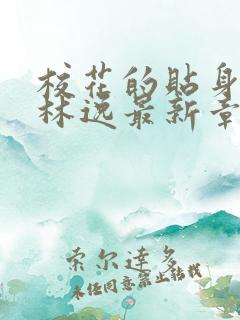 校花的贴身
林逸最新章
索尔达多
未经同意禁止转载